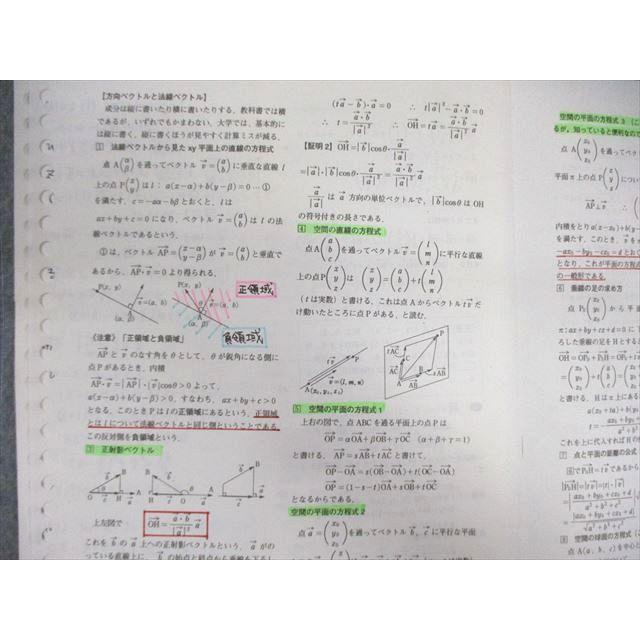 【方向ベクトルと法線ベクトル】
成分は縦に書いたり横に書いたりする。教科書では横
であるが、いずれでもかまわない。大学では、基本的に
は縦に書く。縦に書くほうが見やすく計算ミスが減る。
1 法線ベクトルから見た xy 平面上の直線の方程式
点 A(α β) を通ってベクトル v=(a b) に垂直な直線 l
上の点 P(x y) は l : a(x-α)+b(y-β)=0 …①
を満たす。c=-aα-bβ とおくと、l は
ax+by+c=0 になり、ベクトル v=(a b) は l の法
線ベクトルであるという。
①は、ベクトル AP=(x-α y-β) が v=(a b) と垂直で
あるから、AP・v=0 より得られる。
P(x, y)
v=(a, b)
A
(α, β)
P(x, y)
v=(a, b)
A
(α, β)
正領域
負領域
《注意》「正領域と負領域」
AP と v のなす角を θ として、θ が鋭角になる側に
点 P があるとき、内積
AP・v=|AP|・|v|cosθ>0 よって、
a(x-α)+b(y-β)>0, すなわち、ax+by+c>0
となる。このとき P は l の正領域にあるという。正領域
とは l について法線ベクトルと同じ側ということである。
この反対側を負領域という。
3 正射影ベクトル
上左図で OH=a・b/|a|² a
これを b の a 上への正射影ベクトルという。a がの
っている直線上に、b の始点と終点から垂線を下ろし
(ta-b)・a=0 ∴ t|a|²-a・b=0
∴ t=a・b/|a|² ∴ OH=ta=a・b/|a|² a
【証明 2】 OH=|b|cosθ・a/|a|
=|a|・|b|cosθ・a/|a|²=a・b/|a|² a
a/|a| は a 方向の単位ベクトルで、|b|cosθ は OH
の符号付きの長さである。
4 空間の直線の方程式
点 A(a b c) を通ってベクトル v=(l m n) に平行な直線
上の点 P(x y z) は (x y z)=(a b c)+t(l m n)
(t は実数) と書ける。これは点 A からベクトル tv だ
け動いたところに点 P がある、と読む。
P
v=(l, m, n)
A(x₀, y₀, z₀)
tAC
C
P
AC
A
AB
B
sAB
5 空間の平面の方程式 1
上右の図で、点 ABC を通る平面上の点 P は
OP=αOA+βOB+γOC (α+β+γ=1)
と書ける。AP=sAB+tAC と書けて、
OP-OA=s(OB-OA)+t(OC-OA)
OP=(1-s-t)OA+sOB+tOC
となるからである。
空間の平面の方程式 2
点 a=(x₀ y₀ z₀) を通ってベクトル b, c に平行な平面
空間の平面の方程式 3
るが、知っていると便利なの
点 A(x₀ y₀ z₀) を通ってベ
平面π上の点 P(x y z) につい
AP⊥v ∴
内積をとり a(x-x₀)+b(y
を満たす。このとき、v を
-ax₀-by₀-cz₀=d とお
となり、これが平面の方程式
の一般形である。
6 垂線の足の求め方
点 P₀(x₀ y₀ z₀) から平
π : ax+by+cz+d=0 に
ろした垂線の足を H とする
OH=OP₀+P₀H=OP₀+t
と書ける。H は π 上にある
a(x₀+ta)+b(y
これを上に代入すれば H の
7 点と平面の距離の公式
6 で P₀H=tv であるから
|P₀H|=|tv|=|t|・|v|
8 空間の球面の方程式
点 A(a, b, c) を中心と